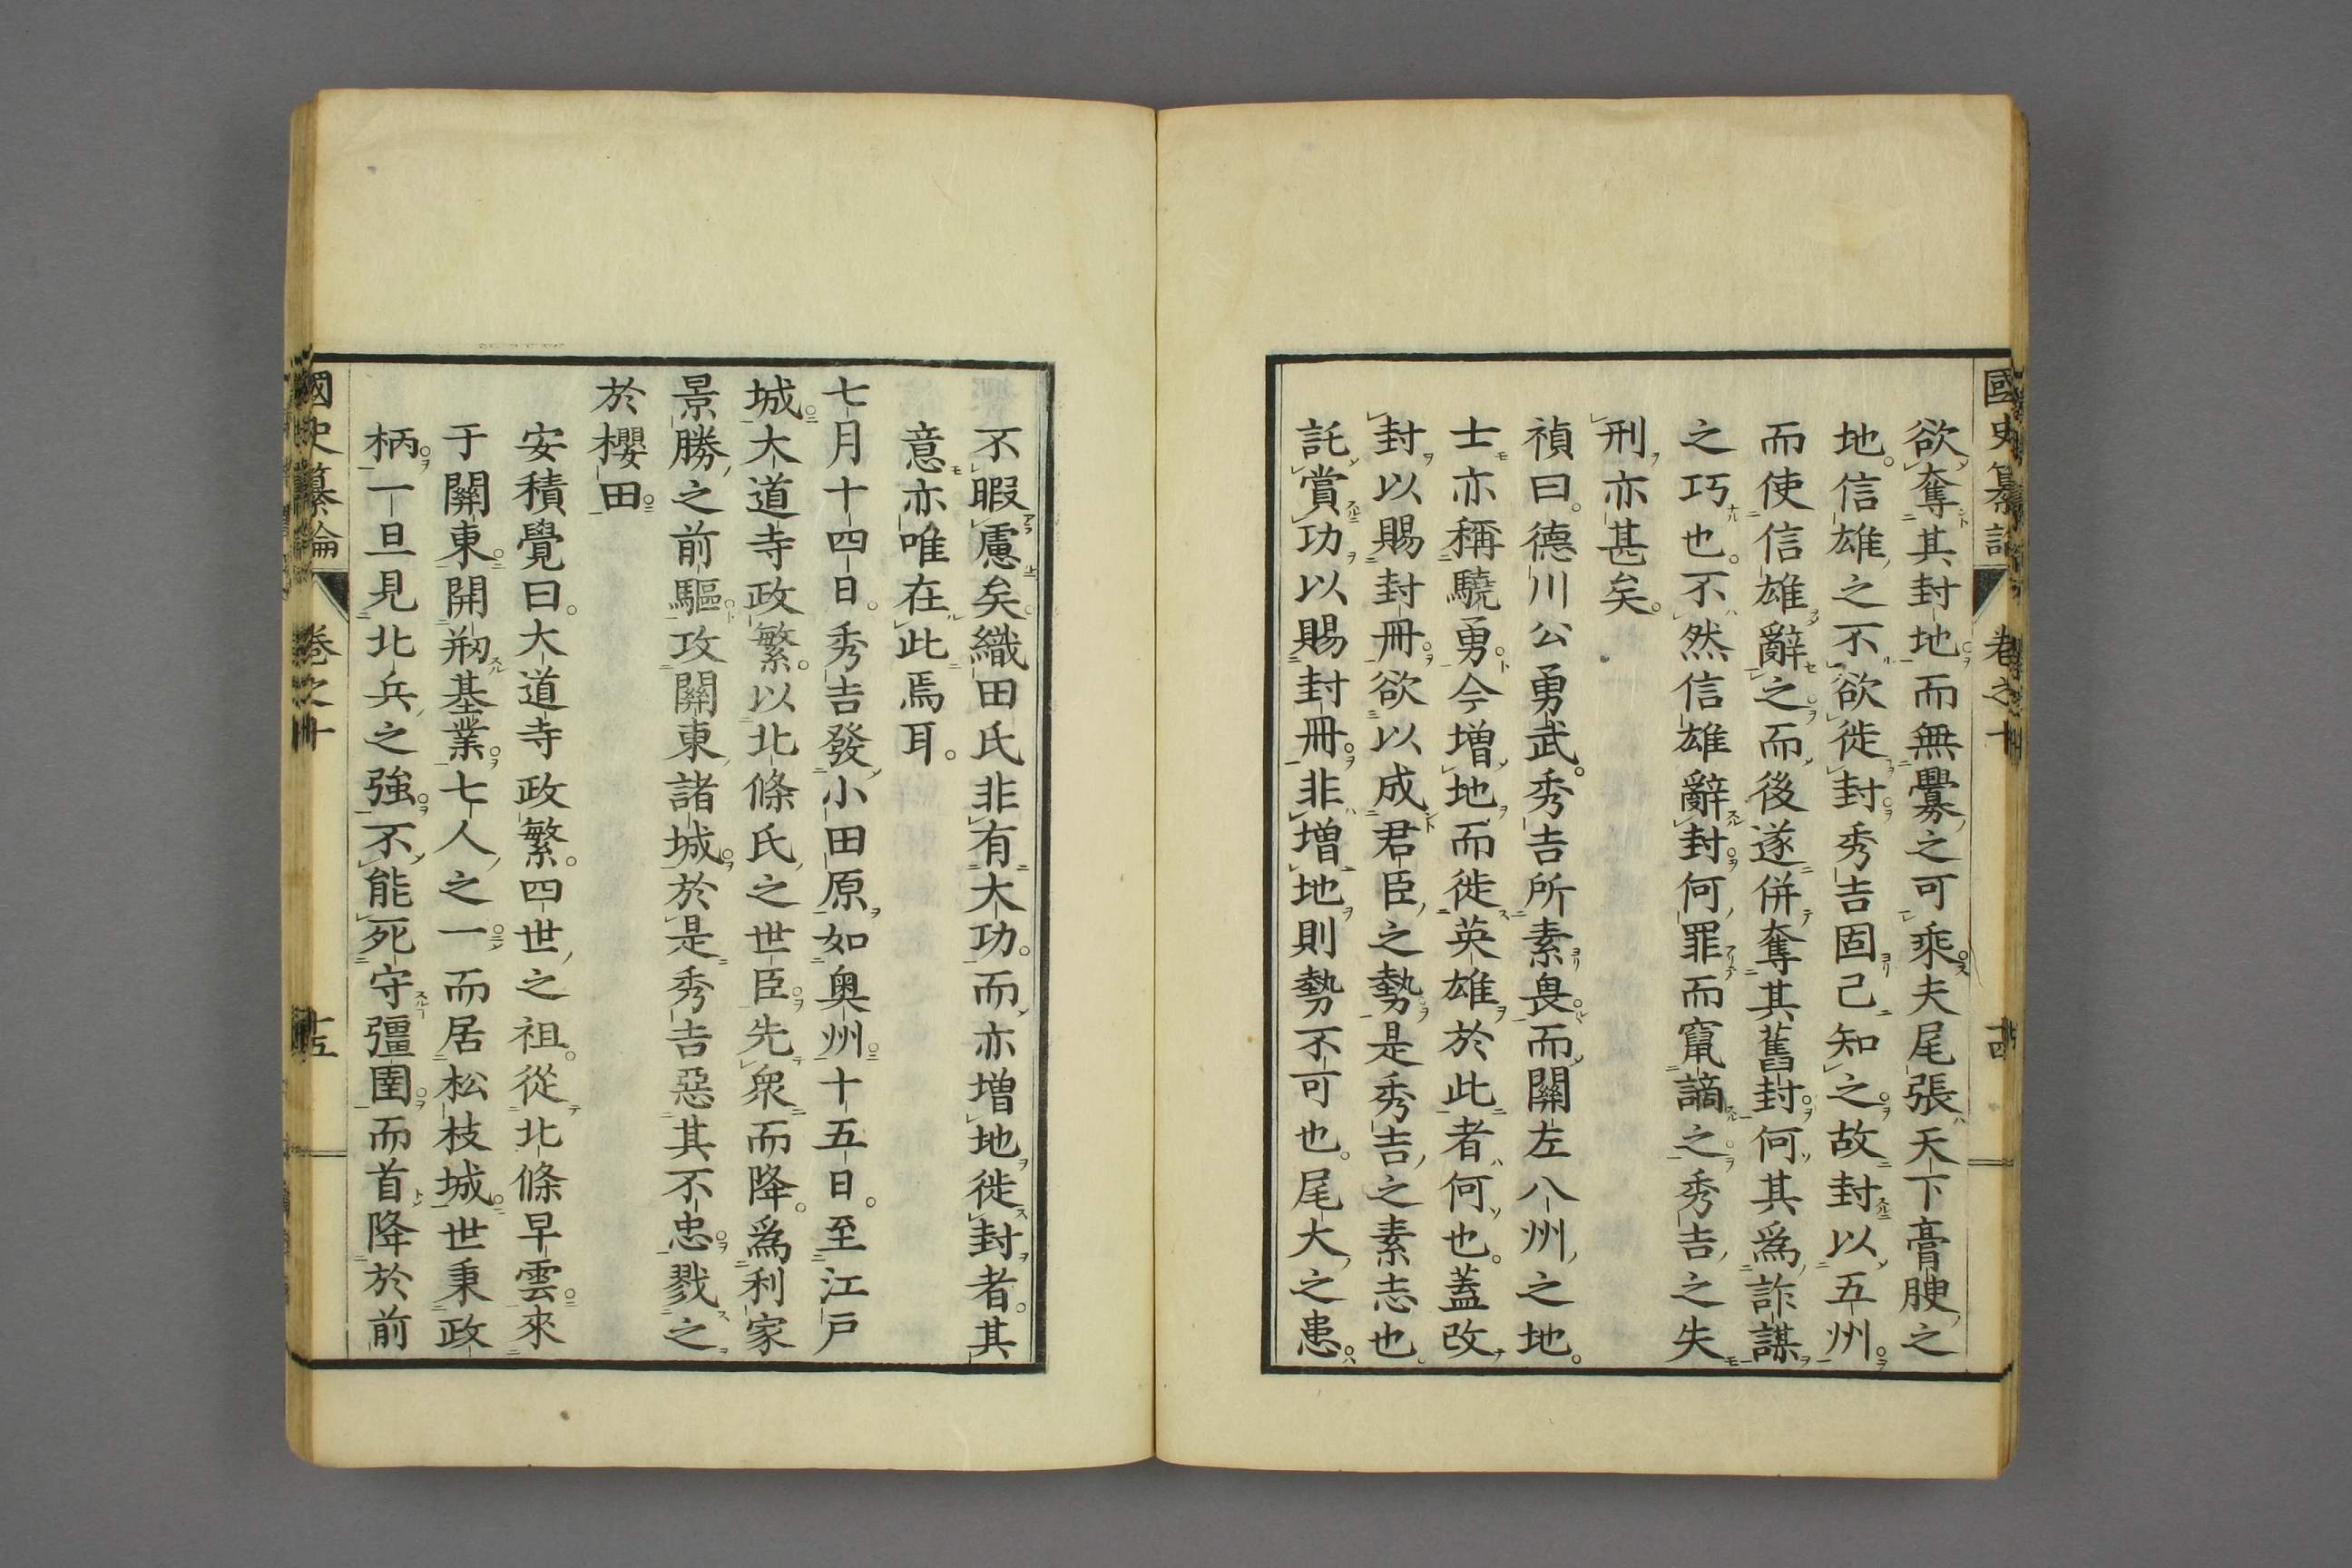 國史纂論 卷之十 十四
欲奪其封地而無釁之可乘夫尾張天下膏腴之
地。信雄之不欲徙封秀吉固己知之故封以五州
而使信雄辭之而後遂併奪其舊封何其爲詐謀
之巧也。不然信雄辭封何罪而竄謫之秀吉之失
刑亦甚矣。
禎曰。德川公勇武。秀吉所素畏而關左八州之地。
士亦稱驍勇今增地而徙英雄於此者何也。蓋改
封以賜封冊欲以成君臣之勢是秀吉之素志也
託賞功以賜封冊非增地則勢不可也。尾大之患。
不暇慮矣。織田氏非有大功。而亦增地徙封者。其
意亦唯在此焉耳。
七月十四日。秀吉發小田原如奧州十五日。至江戶
城大道寺政繁。以北條氏之世臣先衆而降。爲利家
景勝之前驅攻關東諸城於是秀吉惡其不忠戮之
於櫻田
安積覺曰。大道寺政繁。四世之祖。從北條早雲來
于關東開刱基業七人之一而居松枝城世秉政
柄一旦見北兵之強不能死守彊圉而首降於前
國史纂論 卷之十 十五